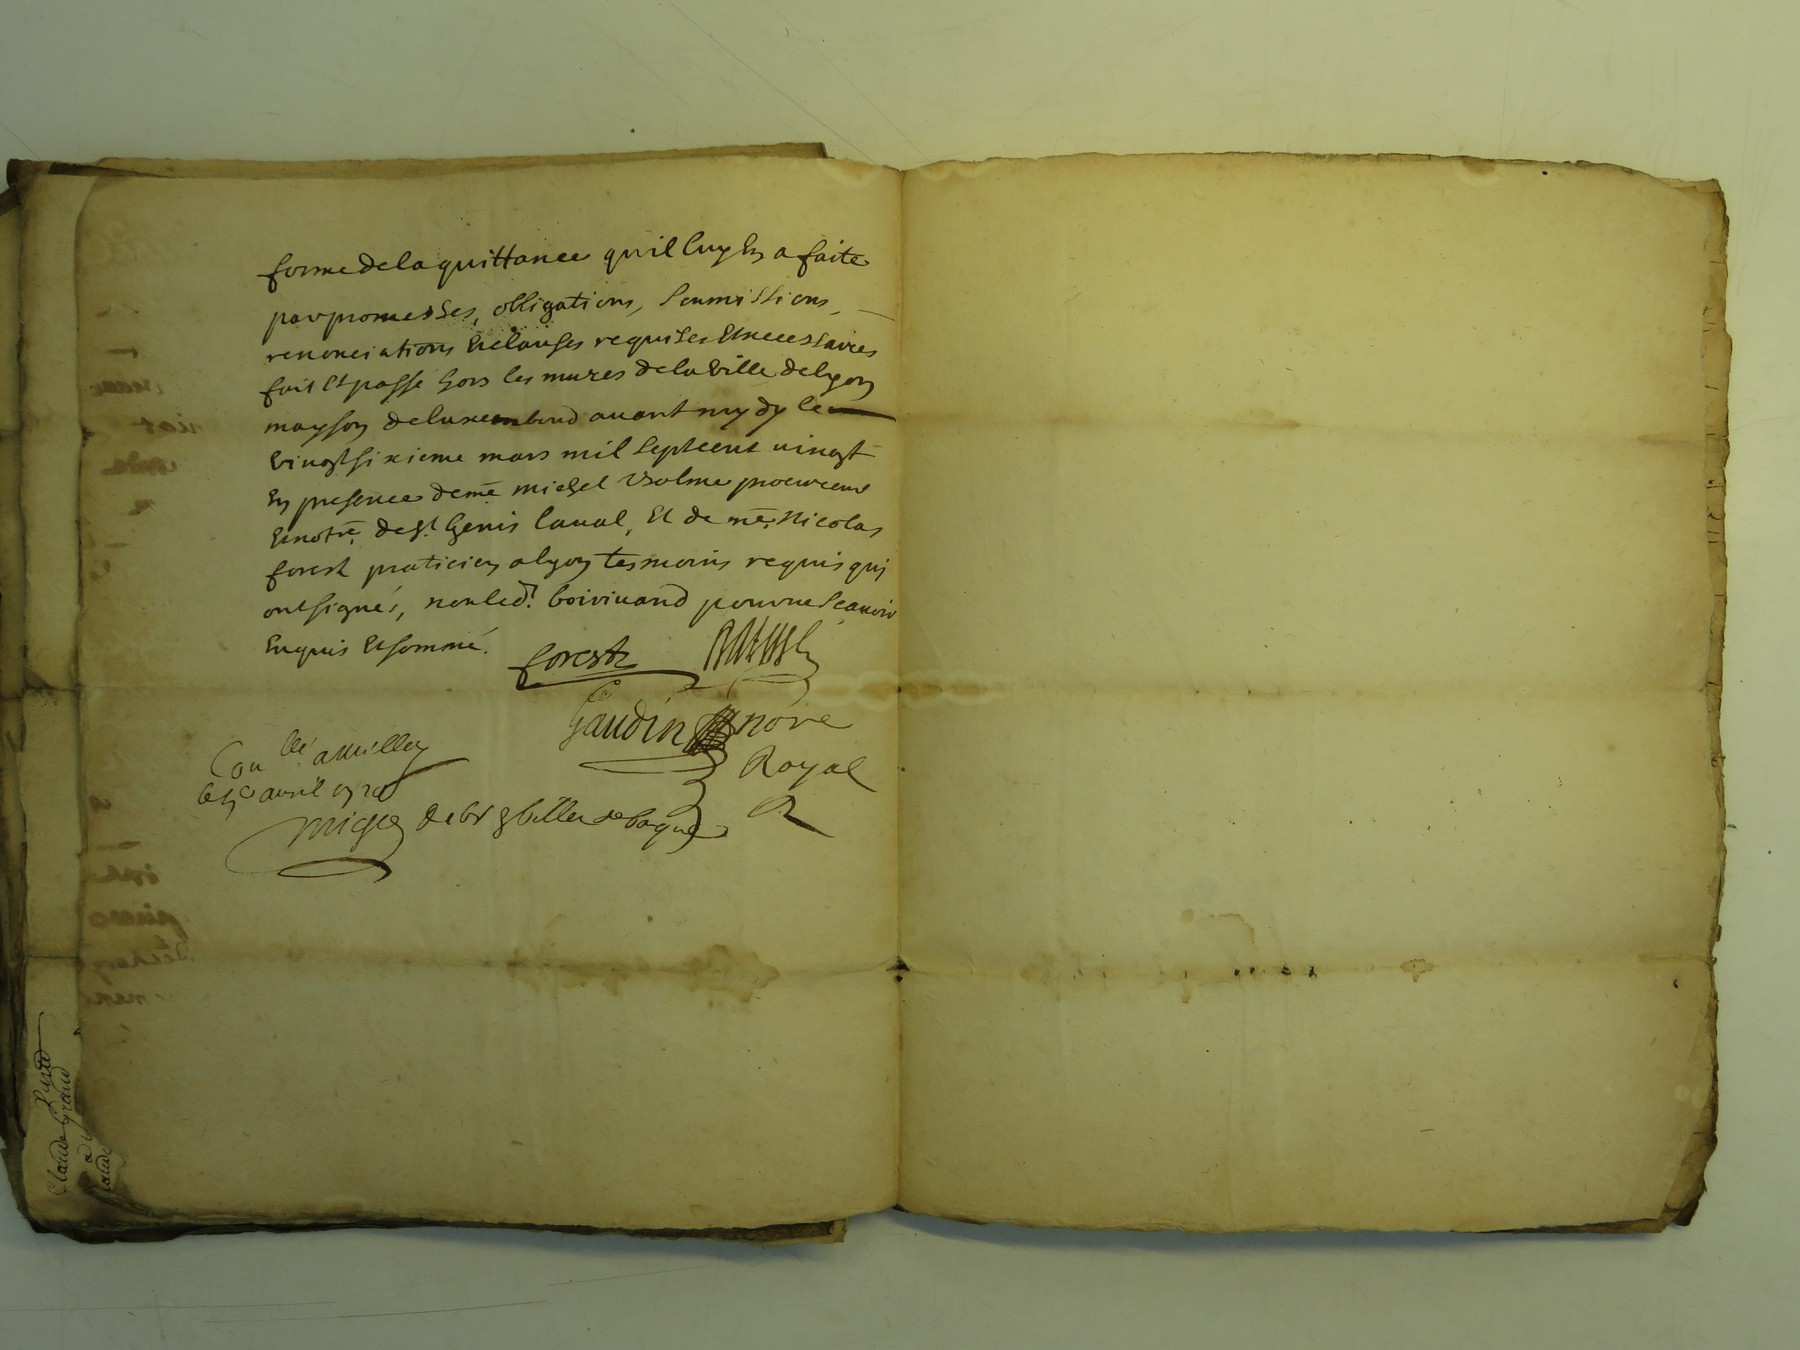 forme de la quittance qu'il luy en a faite
par promesses, obligations, soumissions,
renonciations et clauses requises et necessaires
fait et passé hors les mures de la ville de lyon
mayson de avant mydy le
vingt sixieme mars mil sept cent vingt
en presence de me. michel procureur
et notre. de st. genis laval, et de me. Nicolas
forest praticien a lyon tesmoins requis qui
ont signés, non led. t boivinand pour ne scavoir
enquis et sommé.
forest
Gaudin nore
Royal
Con llé a millery
le avril 1720
Claude Grand